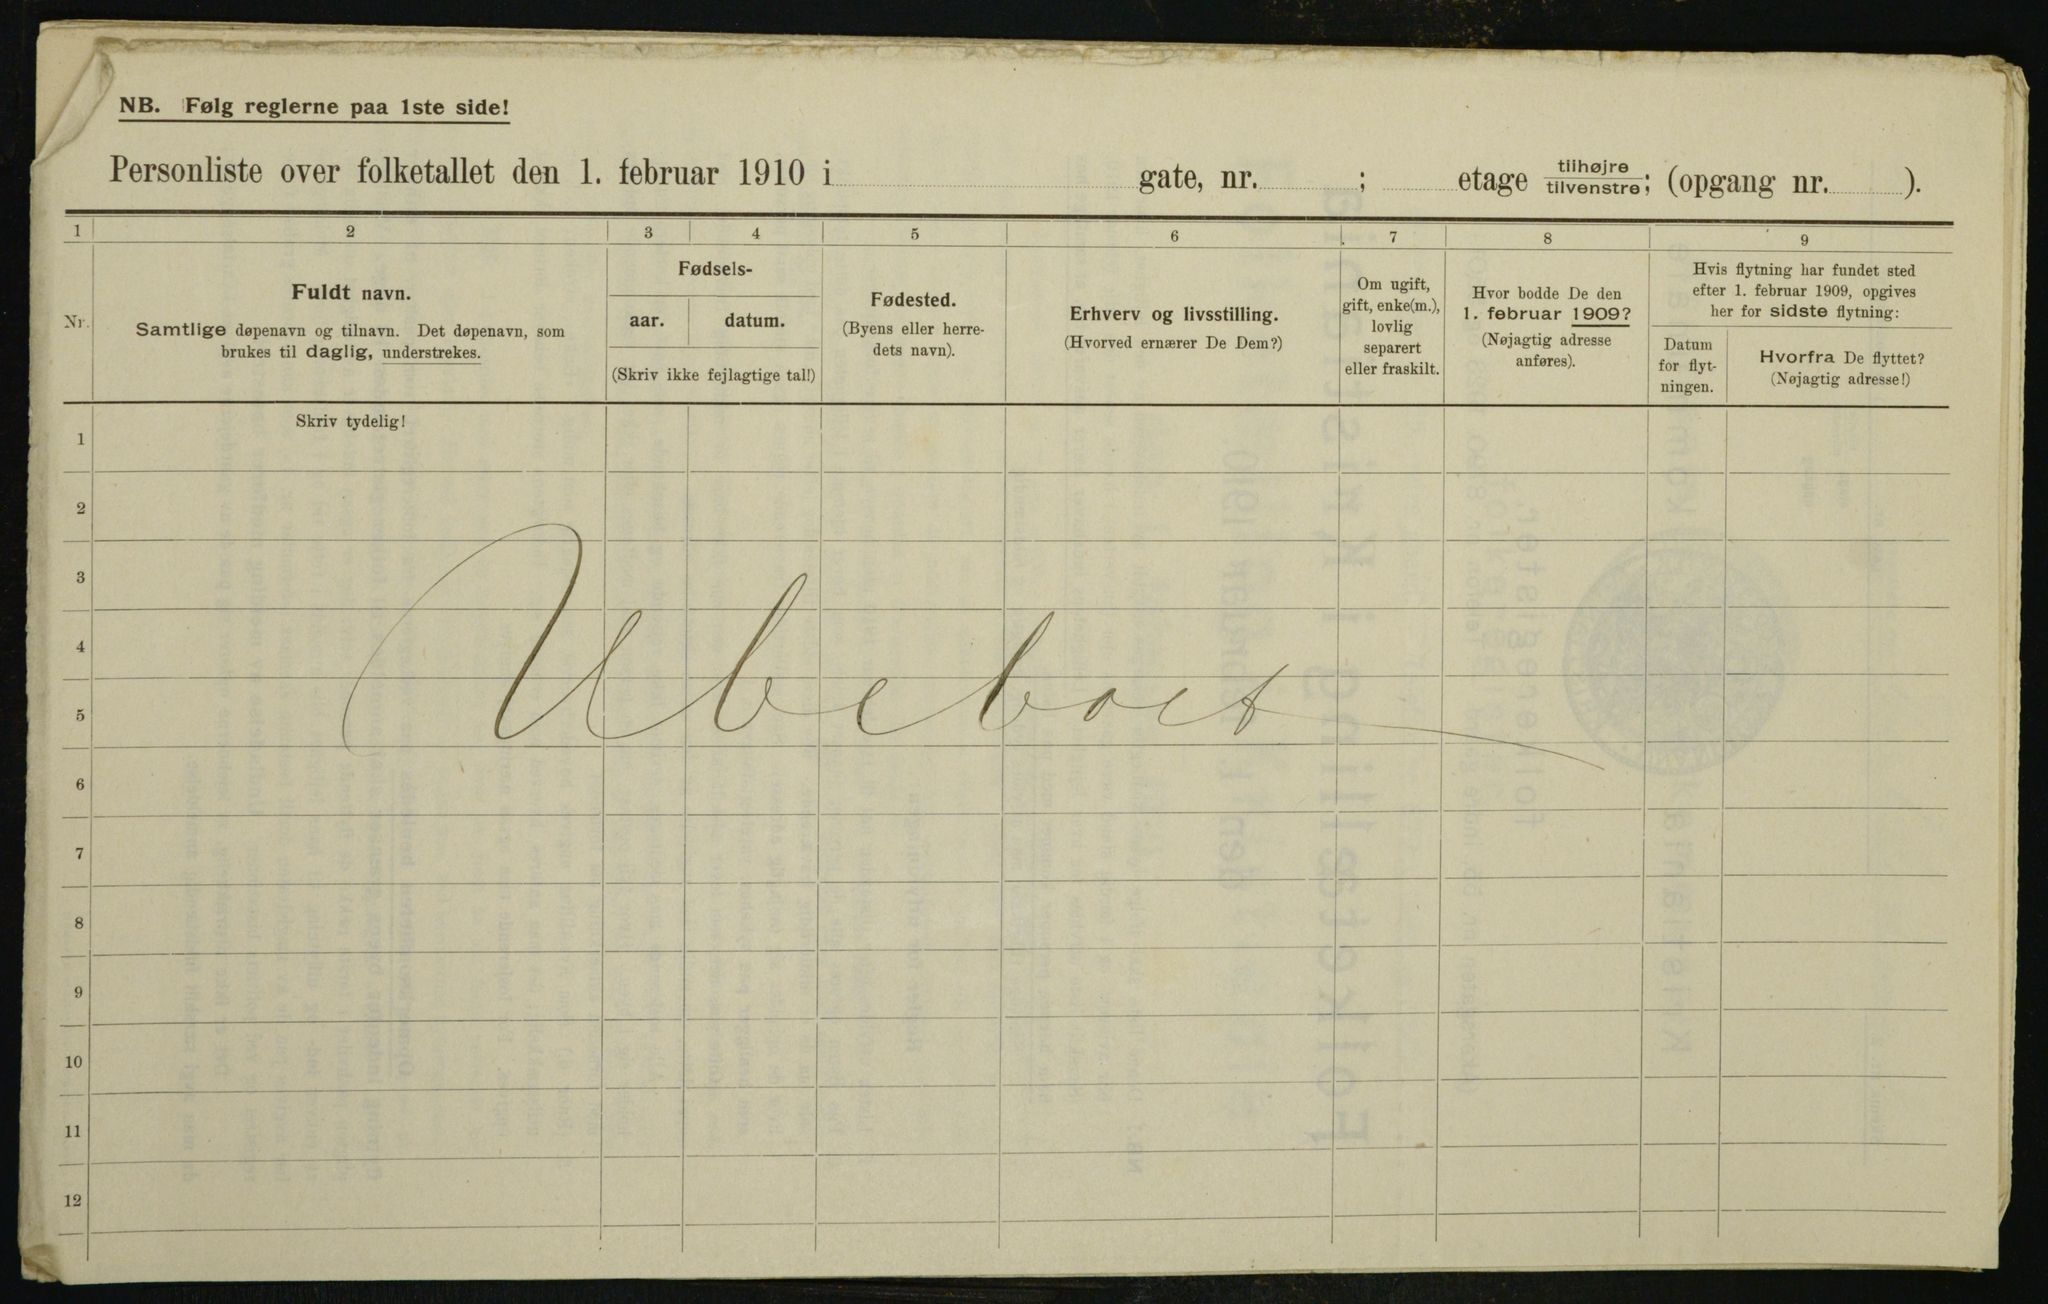 NB. Følg reglerne paa 1ste side!
Personliste over folketallet den 1. februar 1910 i gate, nr. ; etage tilhøjre tilvenstre; (opgang nr. ).
1 2 3 4 5 6 7 8 9
Nr.
Fuldt navn.
Samtlige døpenavn og tilnavn. Det døpenavn, som
brukes til daglig, understrekes.
Fødsels-
aar. datum.
(Skriv ikke fejlagtige tal!)
Fødested.
(Byens eller herre-
dets navn).
Erhverv og livsstilling.
(Hvorved ernærer De Dem?)
Om ugift,
gift, enke(m.),
lovlig
separert
eller fraskilt.
Hvor bodde De den
1. februar 1909?
(Nøjagtig adresse
anføres).
Hvis flytning har fundet sted
efter 1. februar 1909, opgives
her for sidste flytning:
Datum
for flyt-
ningen.
Hvorfra De flyttet?
(Nøjagtig adresse!)
Skriv tydelig!
1
2
3
4
Uboboet
5
6
7
8
9
10
11
12